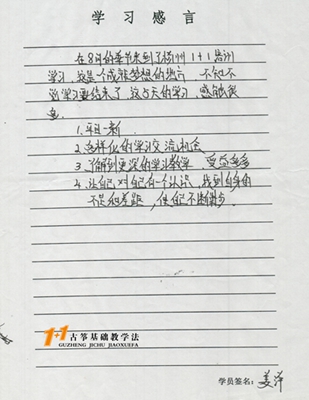 学习感言
在8月的季节来到了扬州1+1培训
学习,这是个成就梦想的地方 不知不
觉学习要结束了,这5天的学习,感触很
多
1、耳目一新
2、这样好的学习交流机会
3、了解到更深的学习教学,受益多多
4、让自己对自己有一个认识,找到自身的
不足和差距,使自己不断进步。
1+1古筝基础教学法
GUZHENG JICHU JIAOXUEFA
学员签名:姜萍